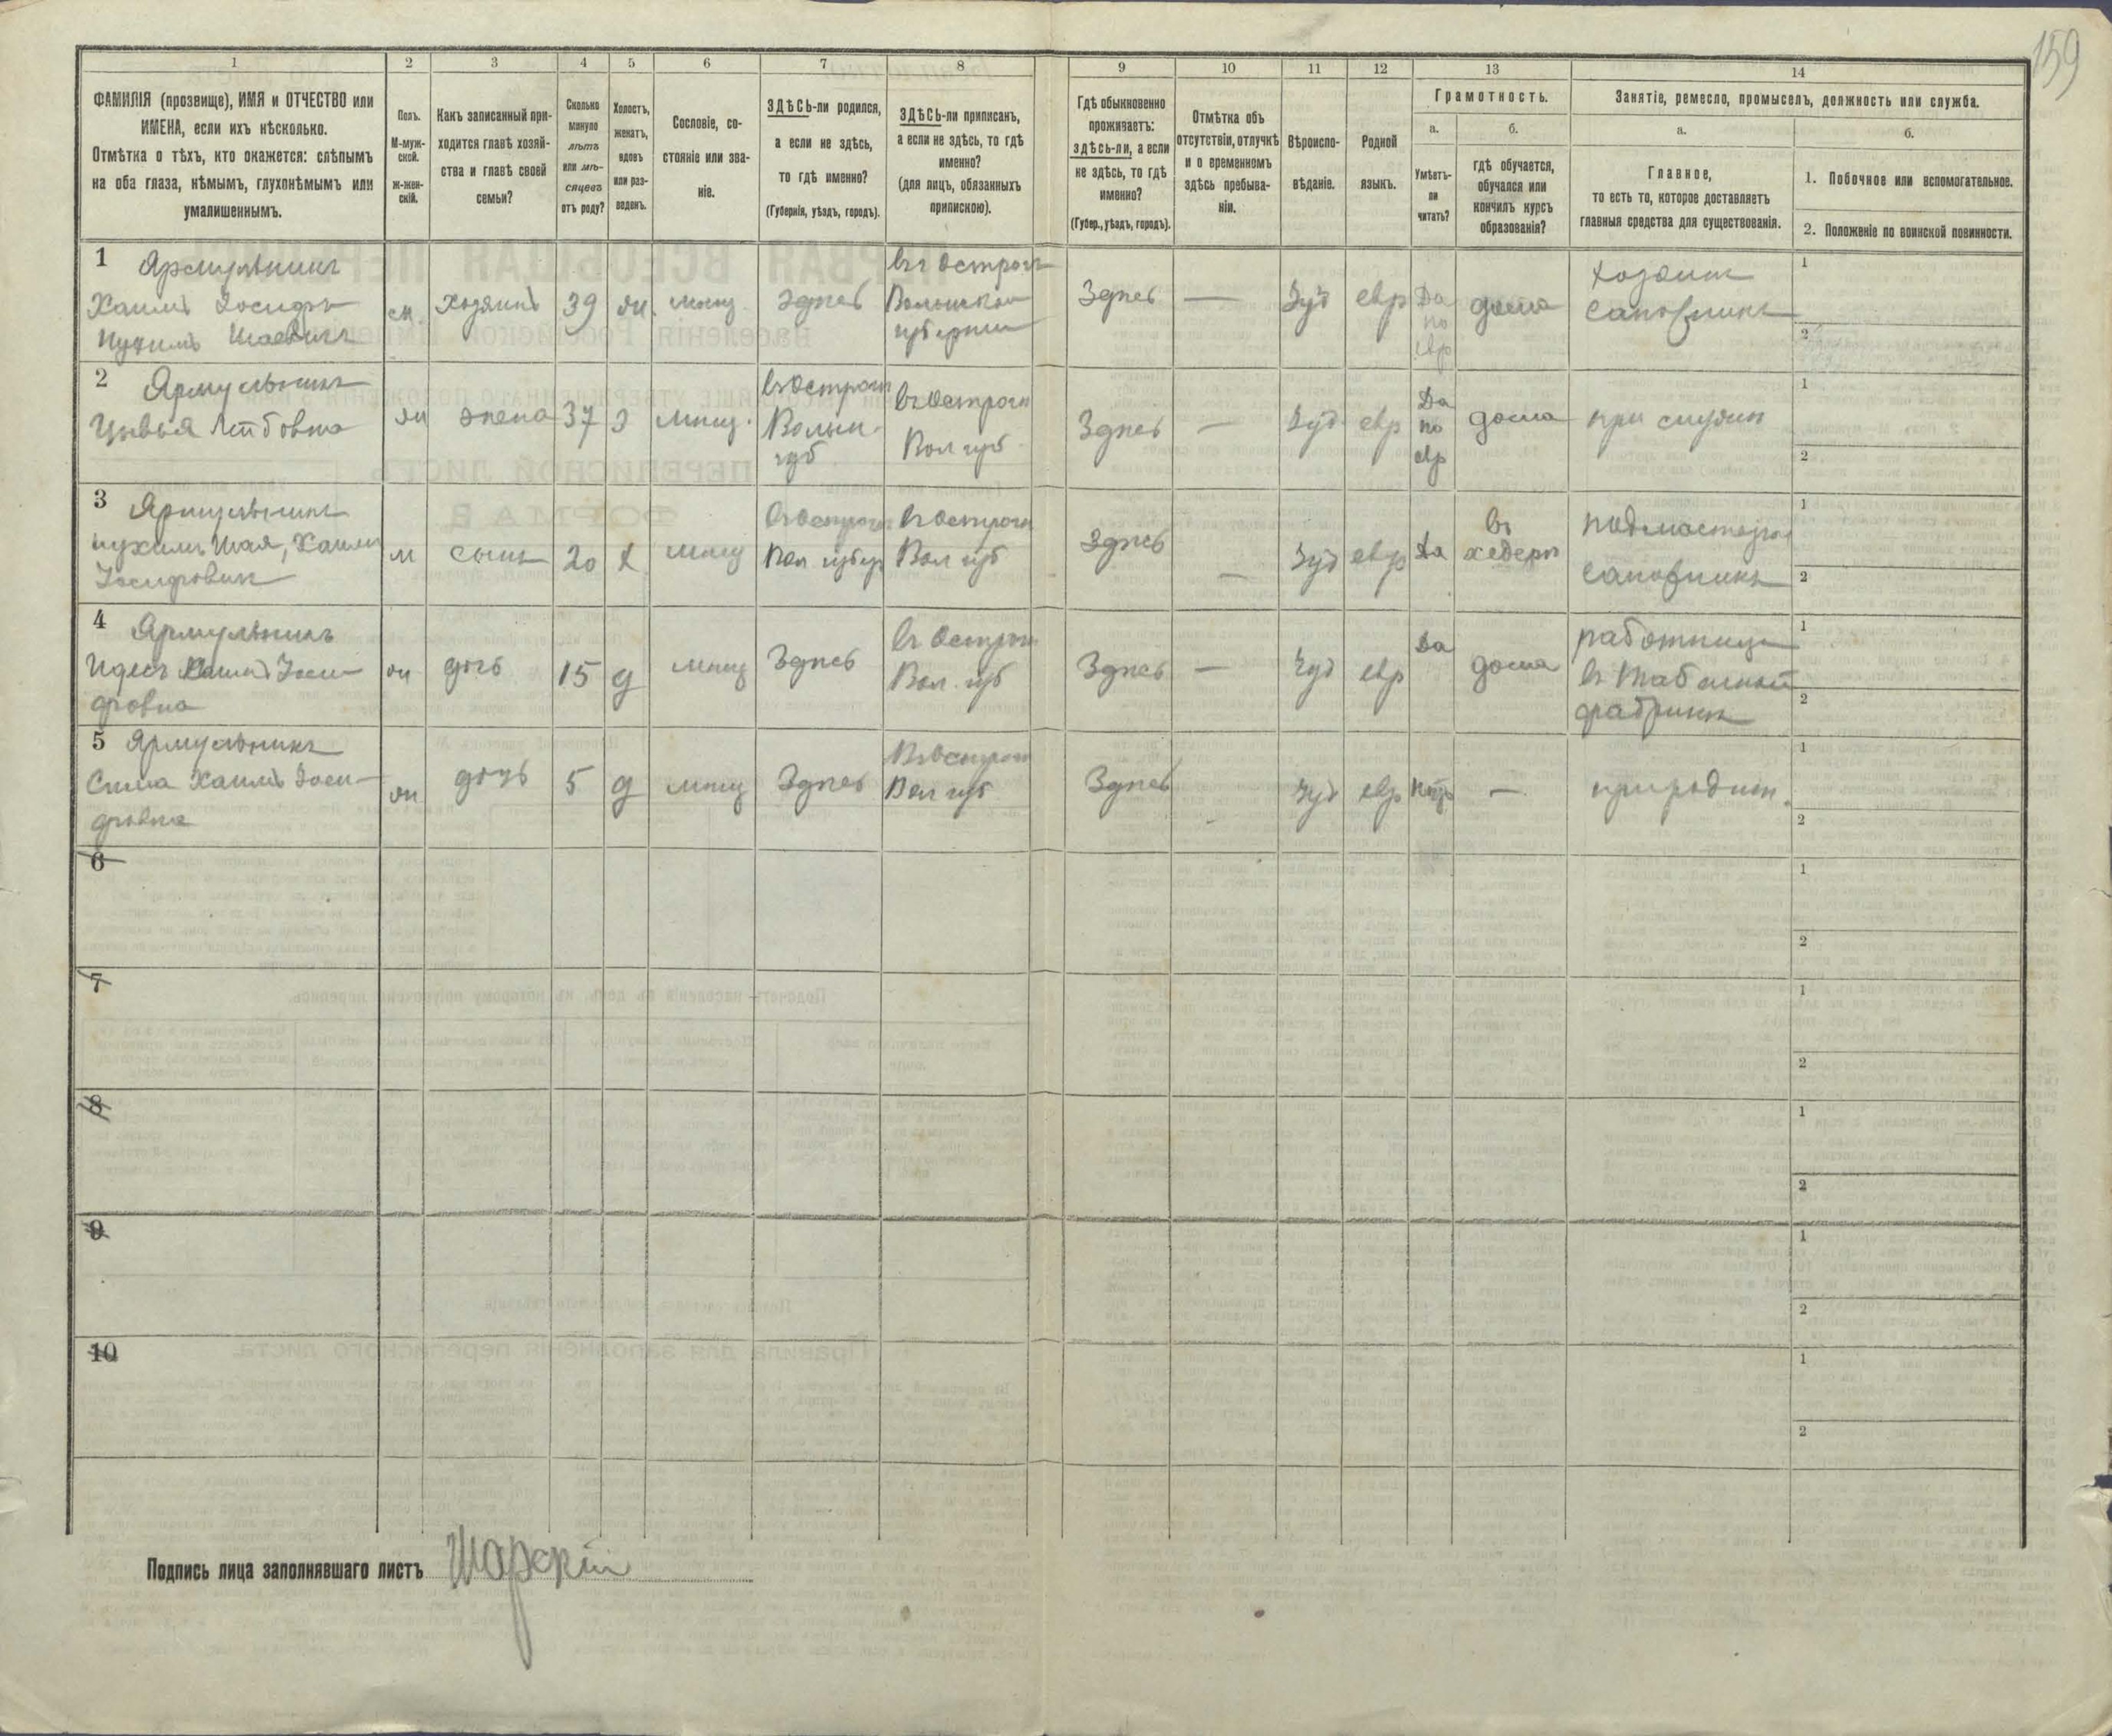 159
1 2 3 4 5 6 7 8 9 10 11 12 13 14
ФАМИЛІЯ (прозвище), ИМЯ и ОТЧЕСТВО или
ИМЕНА, если ихъ нѣсколько.
Отмѣтка о тѣхъ, кто окажется: слѣпымъ
на оба глаза, нѣмымъ, глухонѣмымъ или
умалишеннымъ.
Полъ.
М-муж-
ской.
ж-жен-
скій.
Какъ записанный при-
ходится главѣ хозяй-
ства и главѣ своей
семьи?
Сколько
минуло
лѣтъ
или мѣ-
сяцевъ
отъ роду?
Холостъ,
женатъ,
вдовъ
или раз-
веденъ.
Сословіе, со-
стояніе или зва-
ніе.
ЗДѢСЬ-ли родился,
а если не здѣсь,
то гдѣ именно?
(Губернія, уѣздъ, городъ).
ЗДѢСЬ-ли приписанъ,
а если не здѣсь, то гдѣ
именно?
(для лицъ, обязанныхъ
припискою).
Гдѣ обыкновенно
проживаетъ:
здѣсь-ли, а если
не здѣсь, то гдѣ
именно?
(Губер., уѣздъ, городъ).
Отмѣтка объ
отсутствіи, отлучкѣ
и о временномъ
здѣсь пребыва-
ніи.
Вѣроиспо-
вѣданіе.
Родной
языкъ.
Грамотность.
а.
Умѣетъ-
ли
читать?
б.
гдѣ обучается,
обучался или
кончилъ курсъ
образованія?
Занятіе, ремесло, промыселъ, должность или служба.
а.
Главное,
то есть то, которое доставляетъ
главныя средства для существованія.
б.
1. Побочное или вспомогательное.
2. Положеніе по воинской повинности.
1 Ярмульникъ
Хаимъ Іосифъ
м. хозяинъ 39 ж. мѣщ. Здѣсь
въ г Острогѣ
Волынской
губерніи
Здѣсь — Іуд евр
Да
по
евр
дома
хозяинъ
сапожникъ
1
2
2 Ярмульникъ
Цывья Лейбовна
ж жена 37 з мѣщ.
въ Острогѣ
Волын.
губ
въ Острогѣ
Вол губ
Здѣсь — Іуд евр
Да
по
евр
дома
при мужѣ
1
2
3 Ярмульникъ
Шая, Хаимъ
Іосифовичъ
м сынъ 20 х мѣщ
въ Острогѣ
Вол губер
въ Острогѣ
Вол губ
Здѣсь — Іуд евр Да
въ
хедерѣ
подмастерье
сапожника
1
2
4 Ярмульникъ
Идесъ Хаимъ Іоси-
фовна
ж дочь 15 д мѣщ Здѣсь
въ Острогѣ
Вол. губ
Здѣсь — Іуд евр Да дома
работница
въ табачной
фабрикѣ
1
2
5 Ярмульникъ
Сима Хаимъ Іоси-
фовна
ж дочь 5 д мѣщ Здѣсь
Въ Острогѣ
Вол губ
Здѣсь — Іуд евр нѣтъ —
при родит.
1
2
6
1
2
7
1
2
8
1
2
9
1
2
10
1
2
Подпись лица заполнявшаго листъ